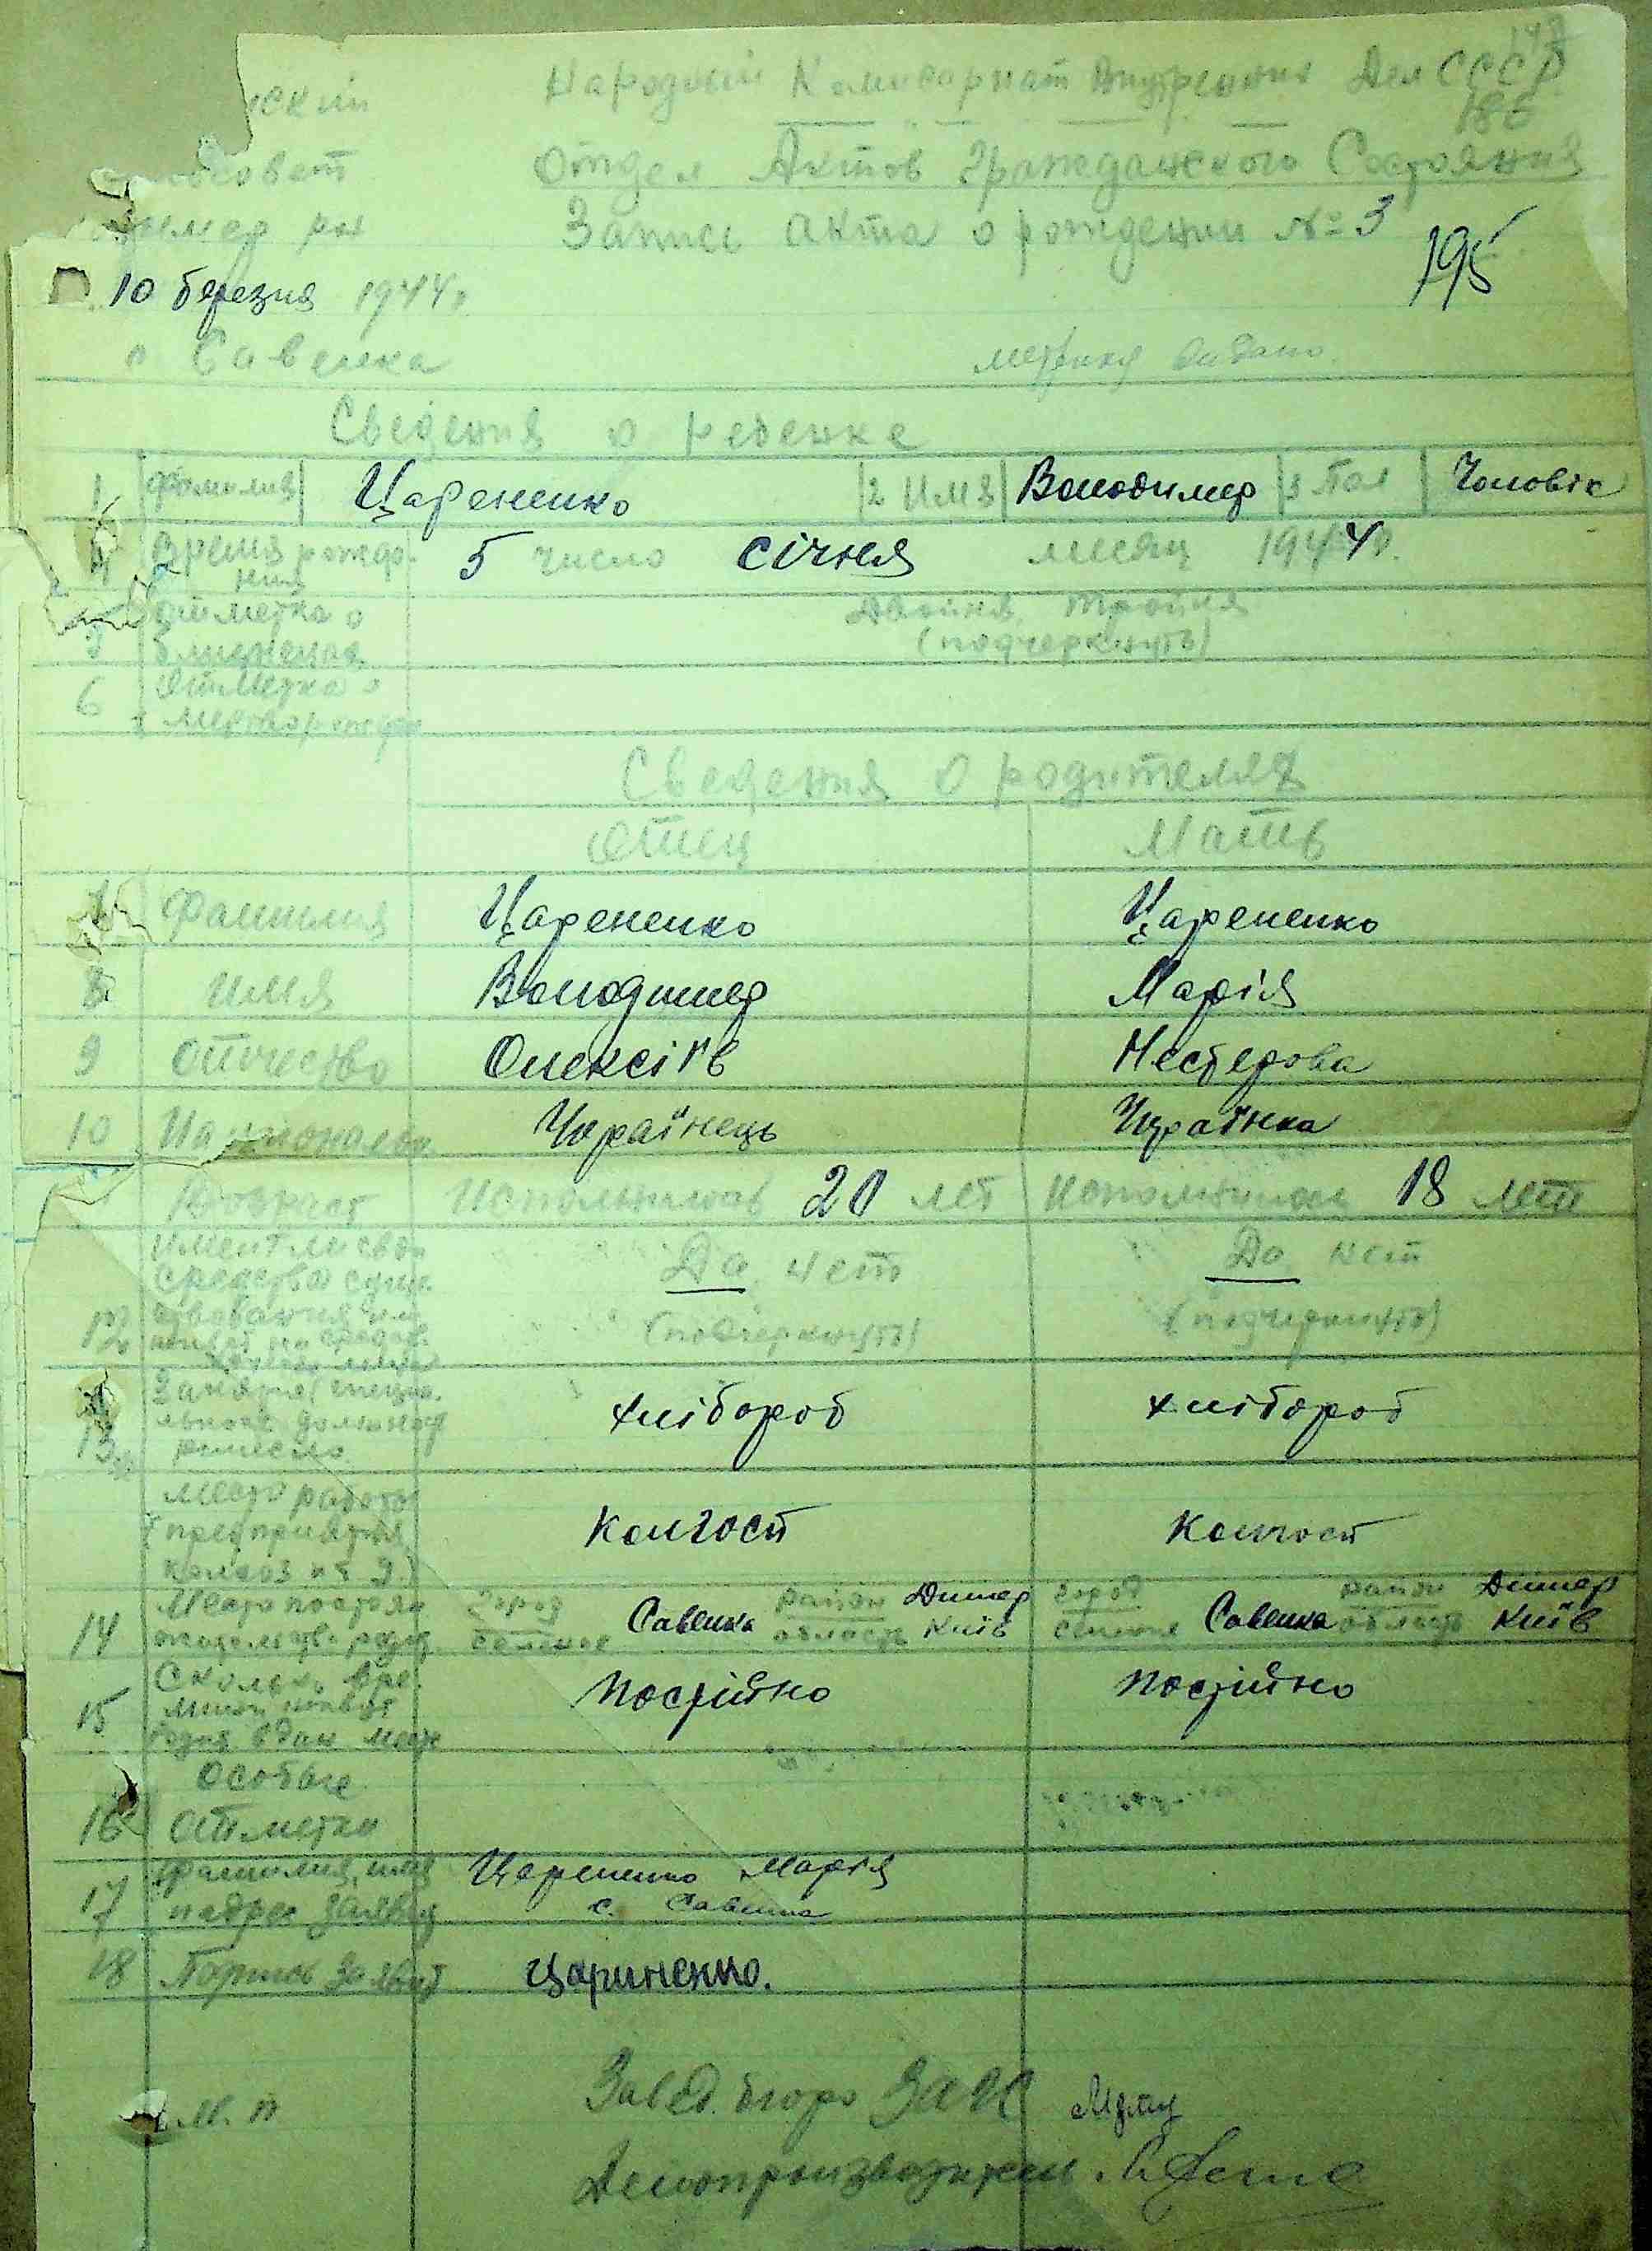 ский Народный Комисариат Внутрених Дел СССР
186
совет Отдел Актов Гражданского Состояния
Запись акта о рождении № 3
195
10 березня 1944 г.
с Савенка метрику видано.
Сведения о ребенке
1 Фамилия Царененко 2 Имя Володимер 3 Пол Чоловік
4 Время рожде-
ния 5 число січня месяц 1944 г.
5 Отметка о Двойня, тройня
(подчеркнуть)
6 Отметка о
мертворожден
Сведения о родителях
Отец Мать
7 Фамилия Царененко Царененко
8 Имя Володимер Марія
9 Отчество Олексіів Нестерова
10 Национальн Українець Українка
Возраст Исполнилось 20 лет Исполнилось 18 лет
Имеет ли свои
средства сущ.
Да, нет Да нет
12 (подчеркнуть) (подчеркнуть)
Занятия (специа-
льность должность
13 ремесло хлібороб хлібороб
Место работы
(предприятия
колхоз и т д.) колгосп колгосп
14 Место постоян Город селение Савенка район Димер область Київ город селение Савенка район Димер область Київ
Сколько вре-
15 постійно постійно
Особые
16 отметки
17 Фамилия, имя Царененко Марія
и адрес заявит с. Савенка
18 Подпись заявит Цариненко.
М. П Завед. бюро ЗАГС
Делопроизводитель